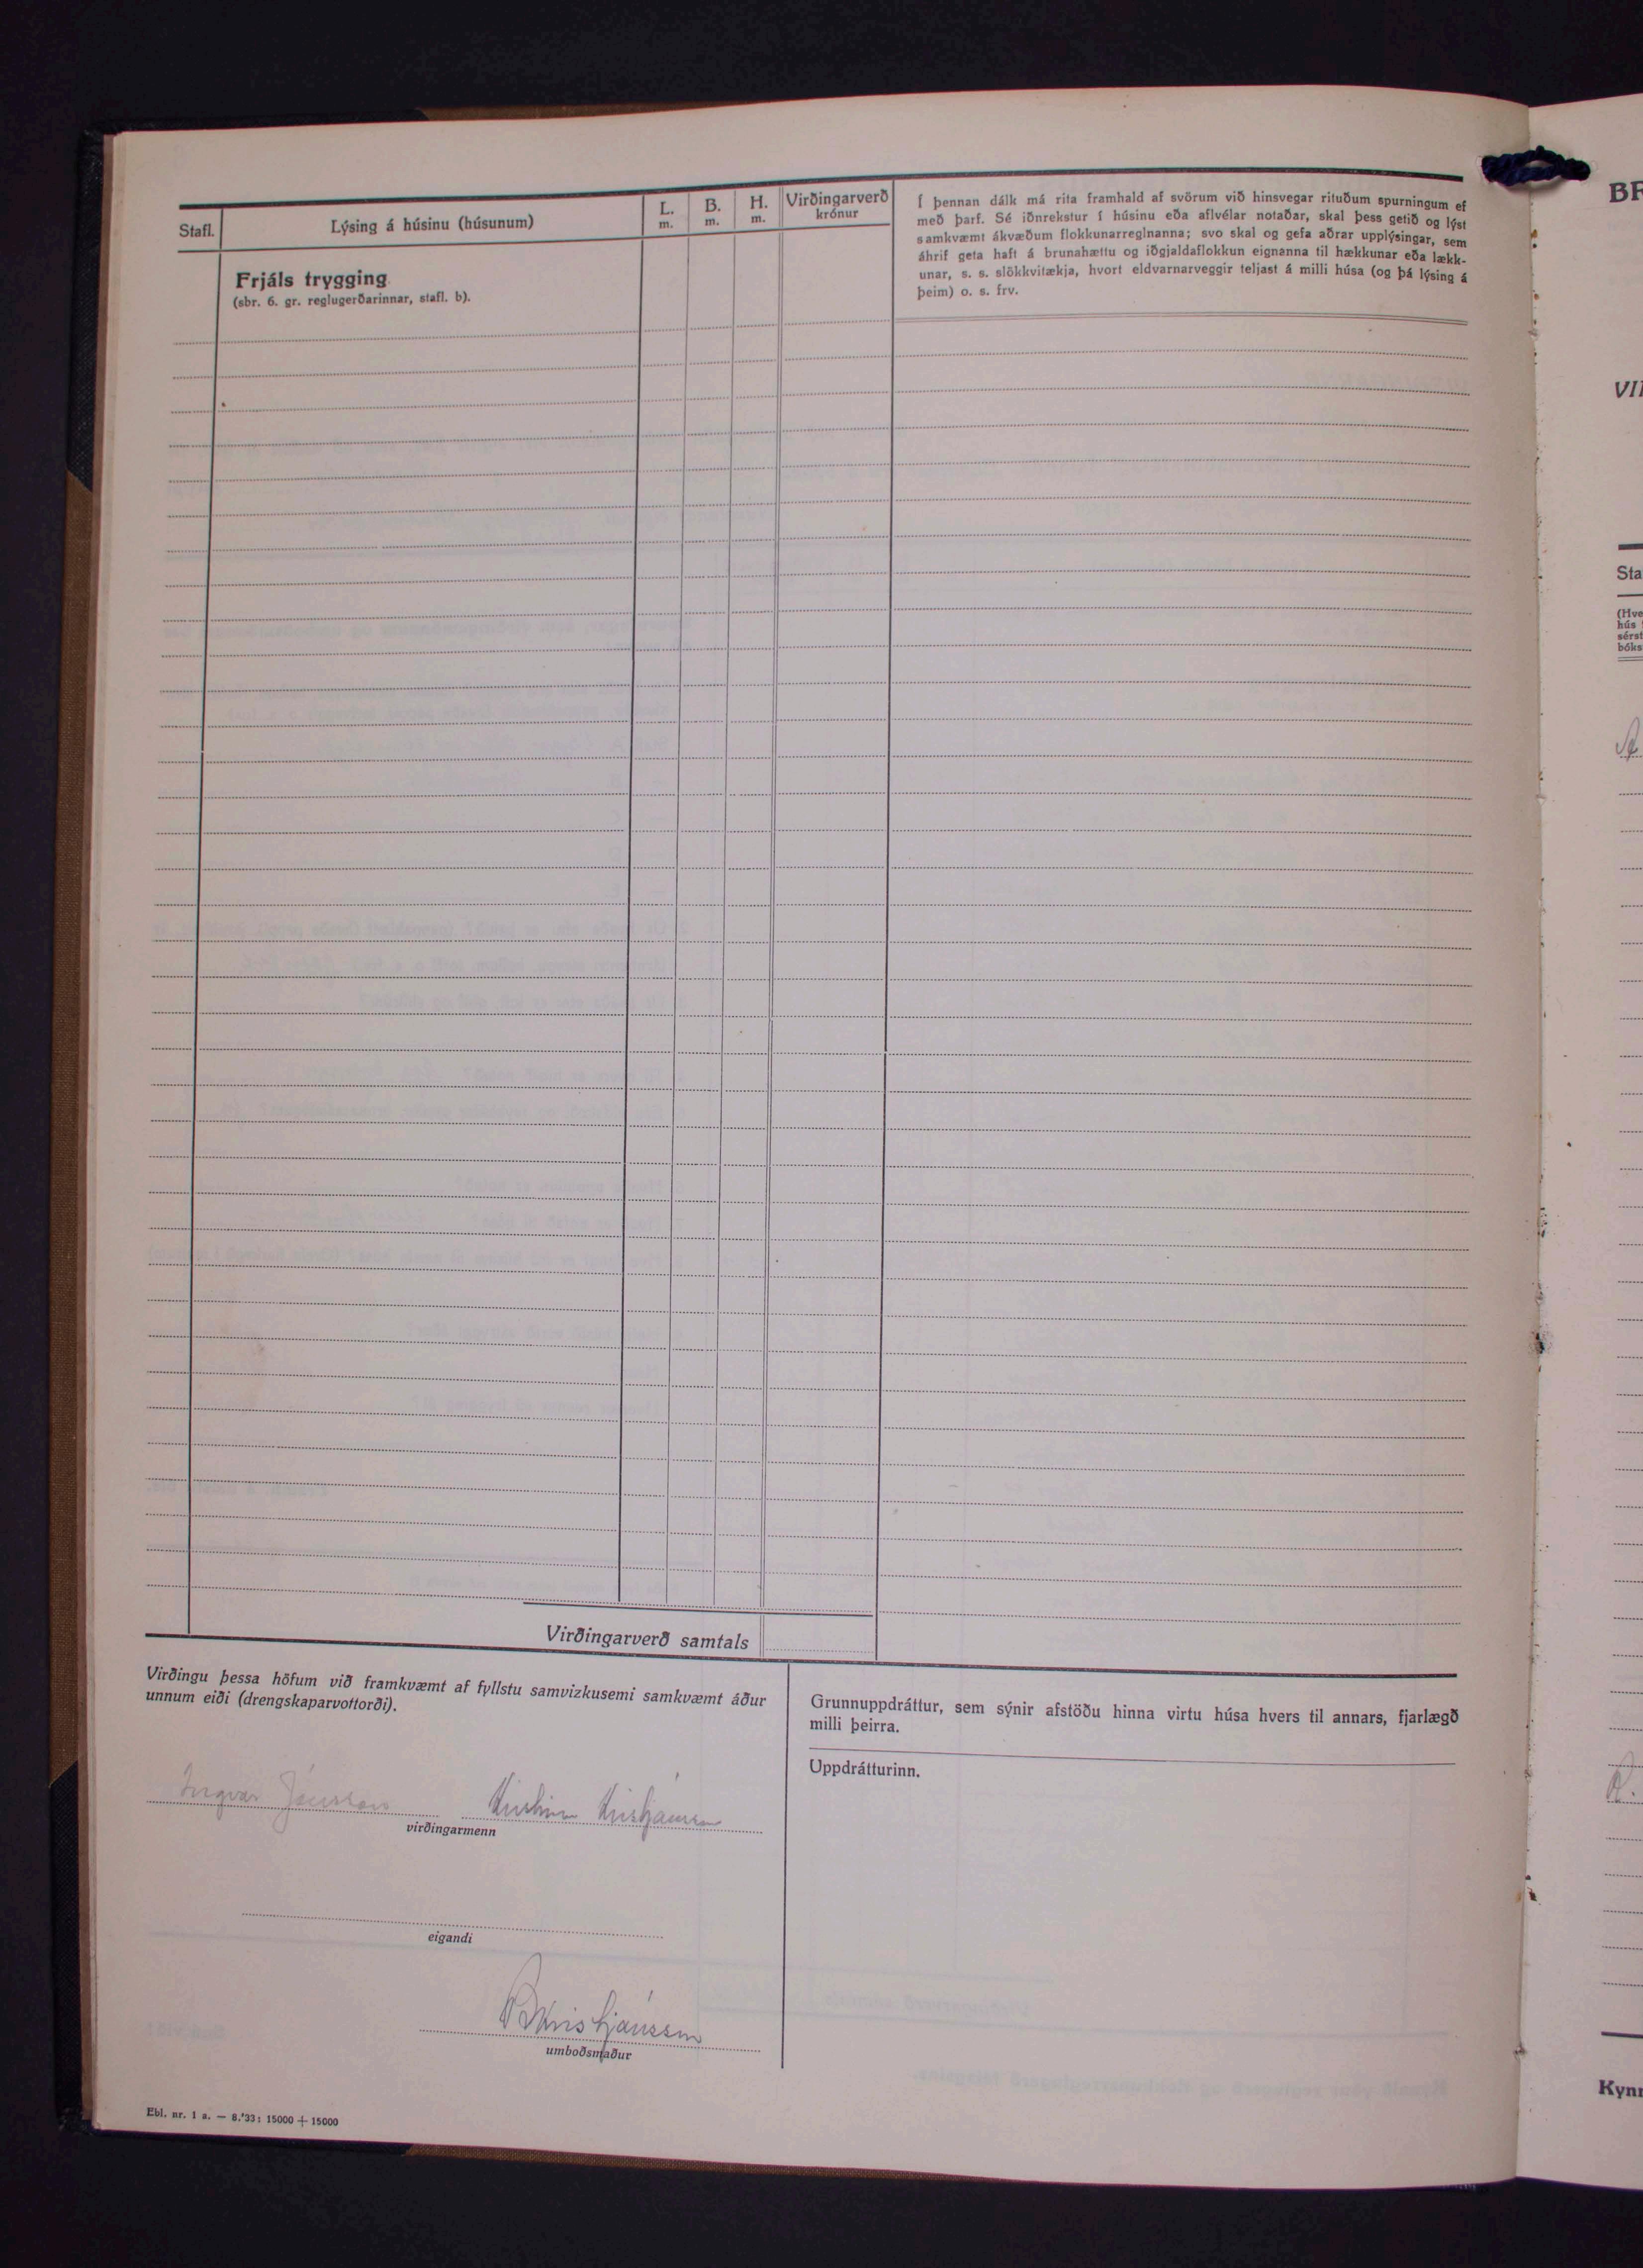 Stafl.
Lýsing á húsinu (húsunum)
L.
m.
B.
m.
H.
m.
Virðingarverð
krónur
Í þennan dálk má rita framhald af svörum við hinsvegar rituðum spurningum ef
með þarf. Sé iðnrekstur í húsinu eða aflvélar notaðar, skal þess getið og lýst
samkvæmt ákvæðum flokkunarreglnanna; svo skal og gefa aðrar upplýsingar, sem
áhrif geta haft á brunahættu og iðgjaldaflokkun eignanna til hækkunar eða lækk-
unar, s. s. slökkvitækja, hvort eldvarnarveggir teljast á milli húsa (og þá lýsing á
þeim) o. s. frv.
Frjáls trygging
(sbr. 6. gr. reglugerðarinnar, stafl. b).
Virðingarverð samtals
Virðingu þessa höfum við framkvæmt af fyllstu samvizkusemi samkvæmt áður
unnum eiði (drengskaparvottorði).
Ingvar Jónsson Kristinn Kristjánsson
virðingarmenn
eigandi
Kristjánsson
umboðsmaður
Grunnuppdráttur, sem sýnir afstöðu hinna virtu húsa hvers til annars, fjarlægð
milli þeirra.
Uppdrátturinn.
Ebl. nr. 1 a. — 8.'33: 15000 + 15000
BR
VII
Sta
(Hve
hús
sérst
bóks
Kynn